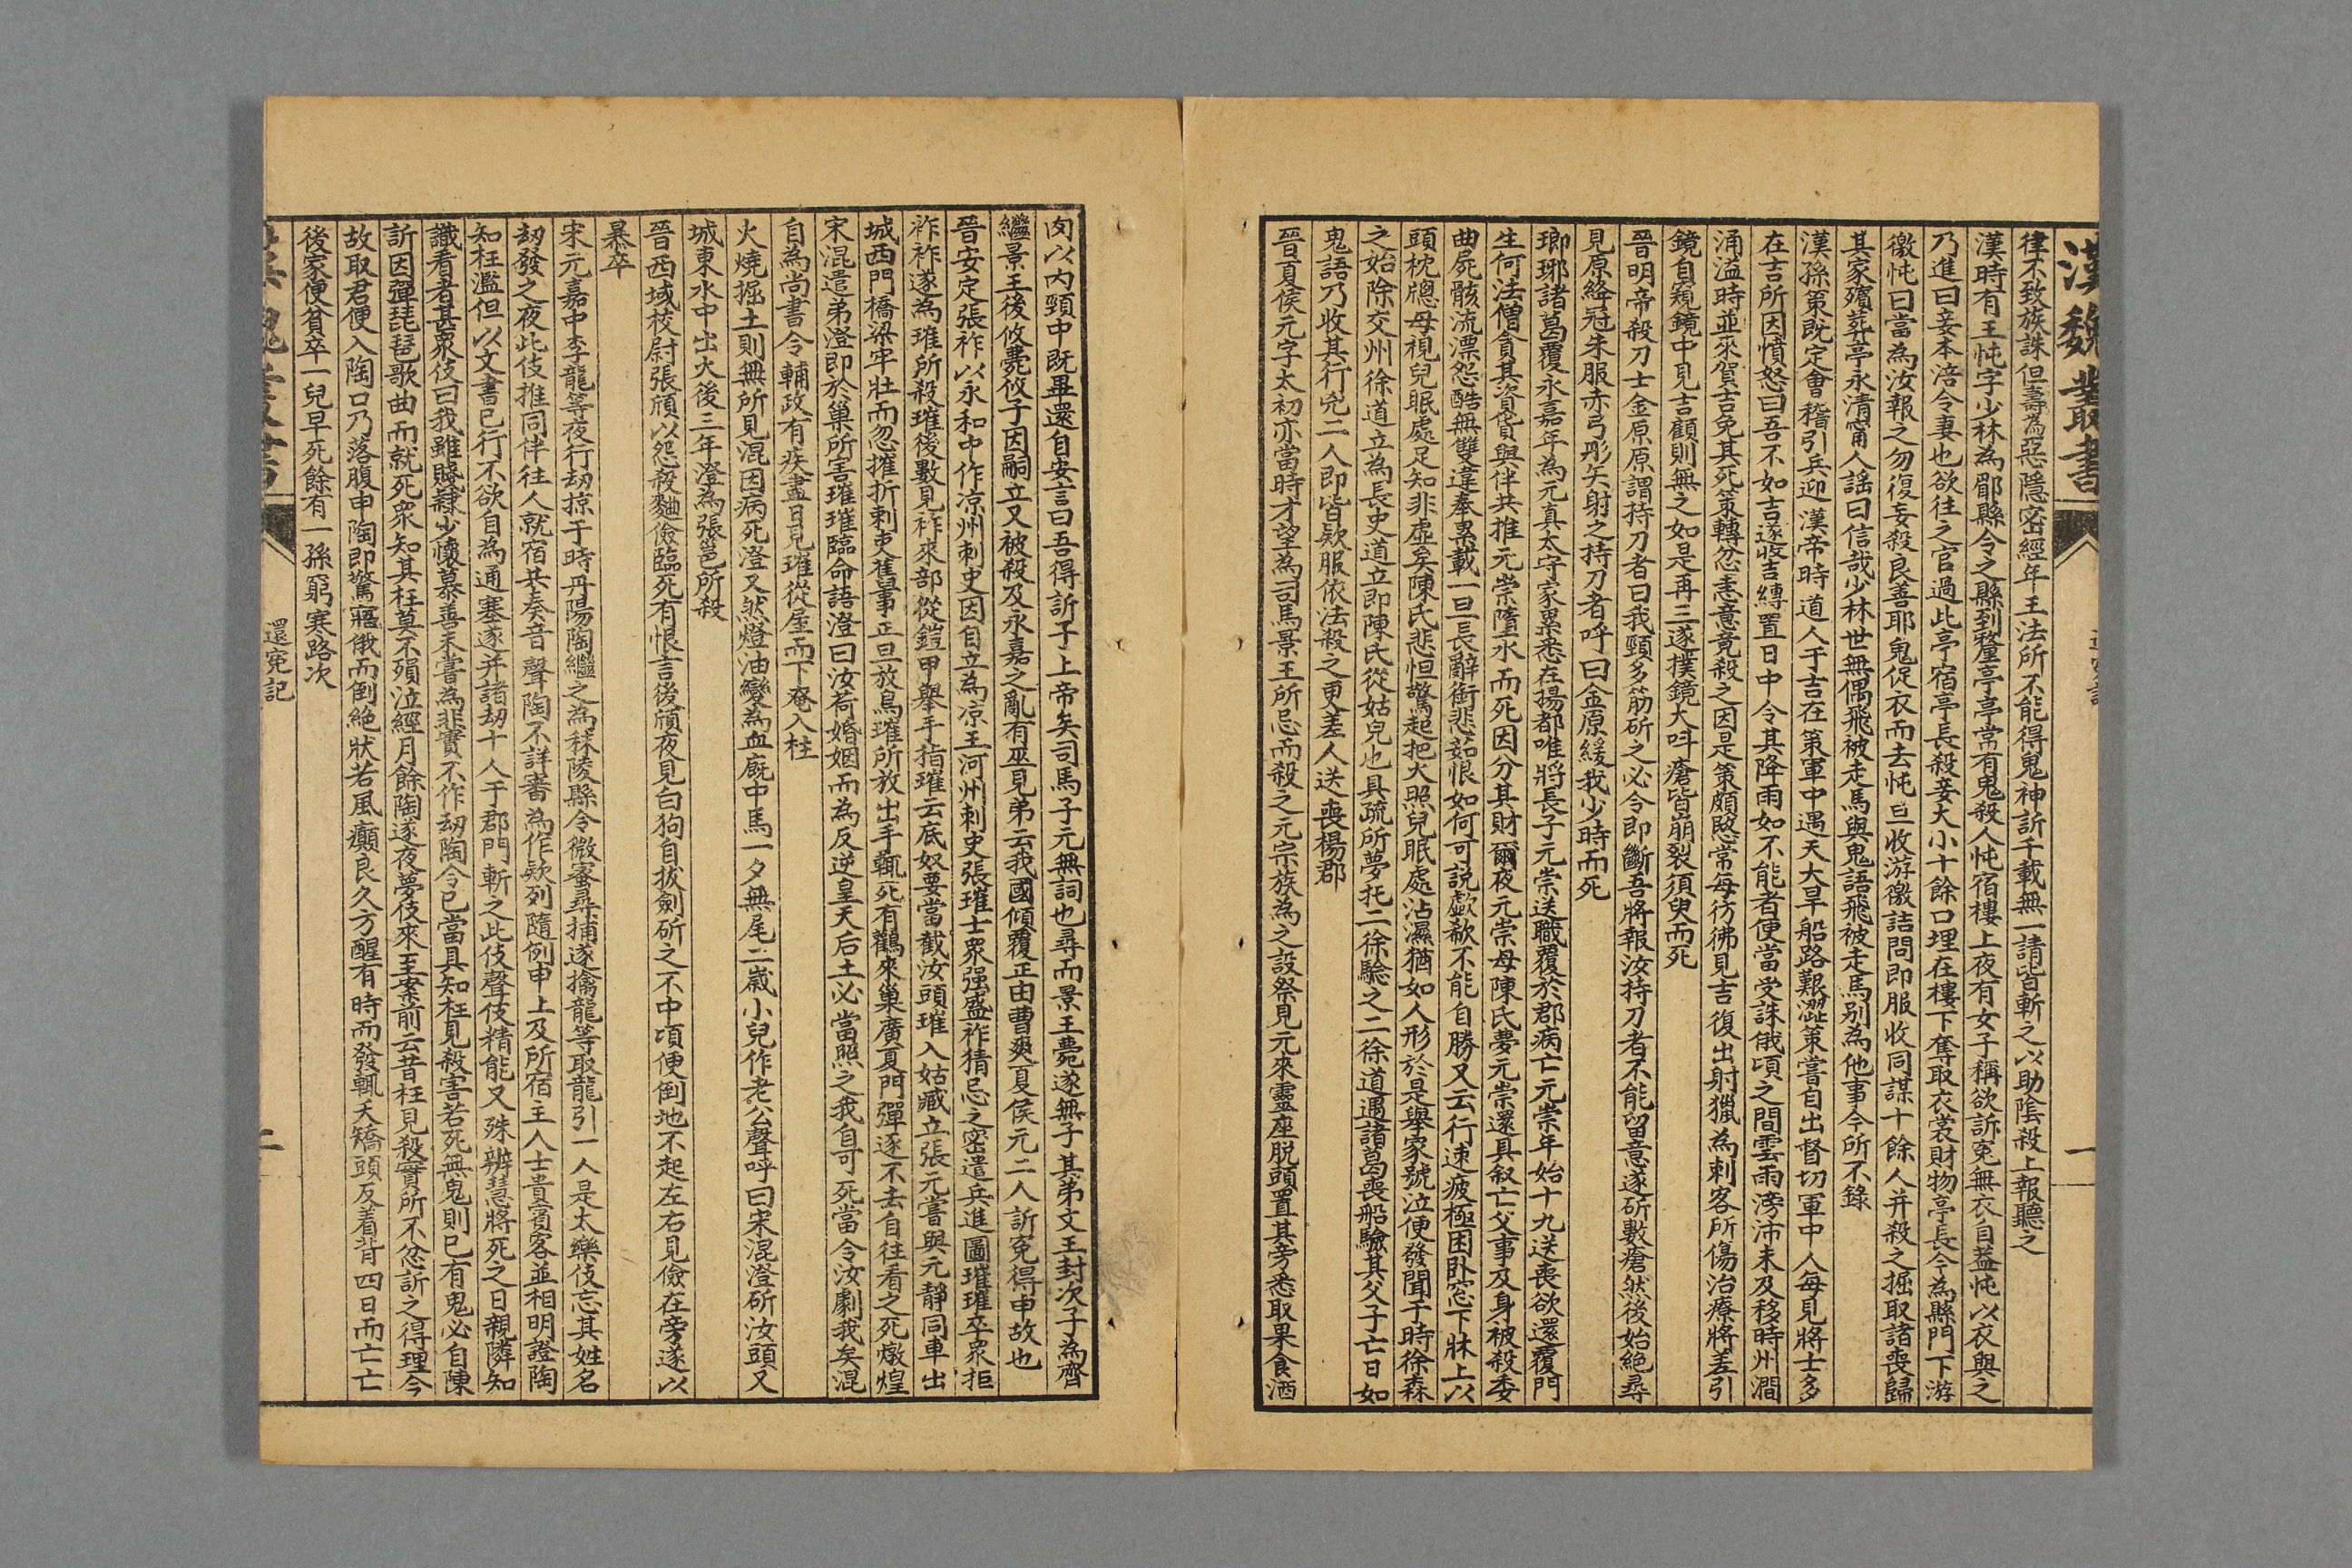 漢魏叢書
一
律不致族誅但壽為惡隱密經年王法所不能得鬼神訴千載無一請皆斬之以助陰殺上報聽之
漢時有王忳字少林為郿縣令之縣到釐亭亭常有鬼殺人忳宿樓上夜有女子稱欲訴冤無衣自蓋忳以衣與之
乃進曰妾本涪令妻也欲往之官過此亭宿亭長殺妾大小十餘口埋在樓下奪取衣裳財物亭長今為縣門下游
徼忳曰當為汝報之勿復妄殺良善耶鬼促衣而去忳旦收游徼詰問即服收同謀十餘人并殺之掘取諸喪歸
其家殯葬亭永清甯人謡曰信哉少林世無偶飛被走馬與鬼語飛被走馬别為他事今所不錄
漢孫策既定會稽引兵迎漢帝時道人于吉在策軍中遇天大旱船路艱澀策嘗自出督切軍中人每見將士多
在吉所因憤怒曰吾不如吉遂收吉縛置日中令其降雨如不能者便當受誅俄頃之間雲雨滂沛未及移時州澗
涌溢時並來賀吉免其死策轉忿恚意竟殺之因是策頗愍常每彷彿見吉復出射獵為刺客所傷治療將差引
鏡自窺鏡中見吉顧則無之如是再三遂撲鏡大呌瘡皆崩裂須臾而死
晉明帝殺刀士金原原謂持刀者曰我頸多筋斫之必令即斷吾將報汝持刀者不能留意遂斫數瘡然後始絶尋
見原絳冠朱服赤弓彤矢射之持刀者呼曰金原緩我少時而死
瑯琊諸葛覆永嘉年為元真太守家累悉在揚都唯將長子元崇送職覆於郡病亡元崇年始十九送喪欲還覆門
生何法僧貪其資貨與伴共推元崇墮水而死因分其財爾夜元崇母陳氏夢元崇還具叙亡父事及身被殺委
曲屍骸流漂怨酷無雙違奉累載一旦長辭銜悲茹恨如何可説歔欷不能自勝又云行速疲極困卧窓下牀上以
頭枕牕母視兒眠處足知非虛矣陳氏悲怛驚起把火照兒眠處沾濕猶如人形於是舉家號泣便發聞于時徐森
之始除交州徐道立為長史道立即陳氏從姑兒也具疏所夢托二徐驗之二徐道遇諸葛喪船驗其父子亡日如
鬼語乃收其行兇二人即皆欵服依法殺之更差人送喪楊郡
晉夏侯元字太初亦當時才望為司馬景王所忌而殺之元宗族為之設祭見元來靈座脱頭置其旁悉取果食酒
肉以内頸中既畢還自安言曰吾得訴于上帝矣司馬子元無詞也尋而景王薨遂無子其弟文王封次子為齊
繼景王後攸薨攸子因嗣立又被殺及永嘉之亂有巫見弟云我國傾覆正由曹爽夏侯元二人訴冤得申故也
晉安定張祚以永和中作凉州刺史因自立為凉王河州刺史張璀士衆强盛祚猜忌之密遣兵進圖璀璀卒衆拒
祚祚遂為璀所殺璀後數見祚來部從鎧甲舉手指璀云底奴要當截汝頭璀入姑臧立張元嘗與元靜同車出
城西門橋梁牢壯而忽摧折刺史舊事正旦放鳥璀所放出手輒死有鸛來巢廣夏門彈逐不去自往看之死燉煌
宋混遣弟澄即於巢所害璀璀臨命語澄曰汝荷婚姻而為反逆皇天后土必當照之我自可死當令汝劇我矣混
自為尚書令輔政有疾晝日見璀從屋而下奄入柱
火燒掘土則無所見混因病死澄又然燈油變為血廐中馬一夕無尾二歲小兒作老公聲呼曰宋混澄斫汝頭又
城東水中出火後三年澄為張邕所殺
晉西域校尉張頎以怨殺麯儉臨死有恨言後頎夜見白狗自拔劍斫之不中頃便倒地不起左右見儉在旁遂以
暴卒
宋元嘉中李龍等夜行劫掠于時丹陽陶繼之為秣陵縣令微蜜尋捕遂擒龍等取龍引一人是太樂伎忘其姓名
劫發之夜此伎推同伴往人就宿共奏音聲陶不詳審為作欵列隨例申上及所宿主人士貴賓客並相明證陶
知枉濫但以文書已行不欲自為通塞遂并諸劫十人于郡門斬之此伎聲伎精能又殊辨慧將死之日親隣知
識看者甚衆伎曰我雖賤隸少懷慕善未嘗為非實不作劫陶令已當具知枉見殺害若死無鬼則已有鬼必自陳
訴因彈琵琶歌曲而就死衆知其枉莫不殞泣經月餘陶遂夜夢伎來至案前云昔枉見殺實所不忿訴之得理今
故取君便入陶口乃落腹中陶即驚寤俄而倒絶狀若風癲良久方醒有時而發輒夭矯頭反着背四日而亡亡
後家便貧卒一兒早死餘有一孫窮寒路次
還冤記
二